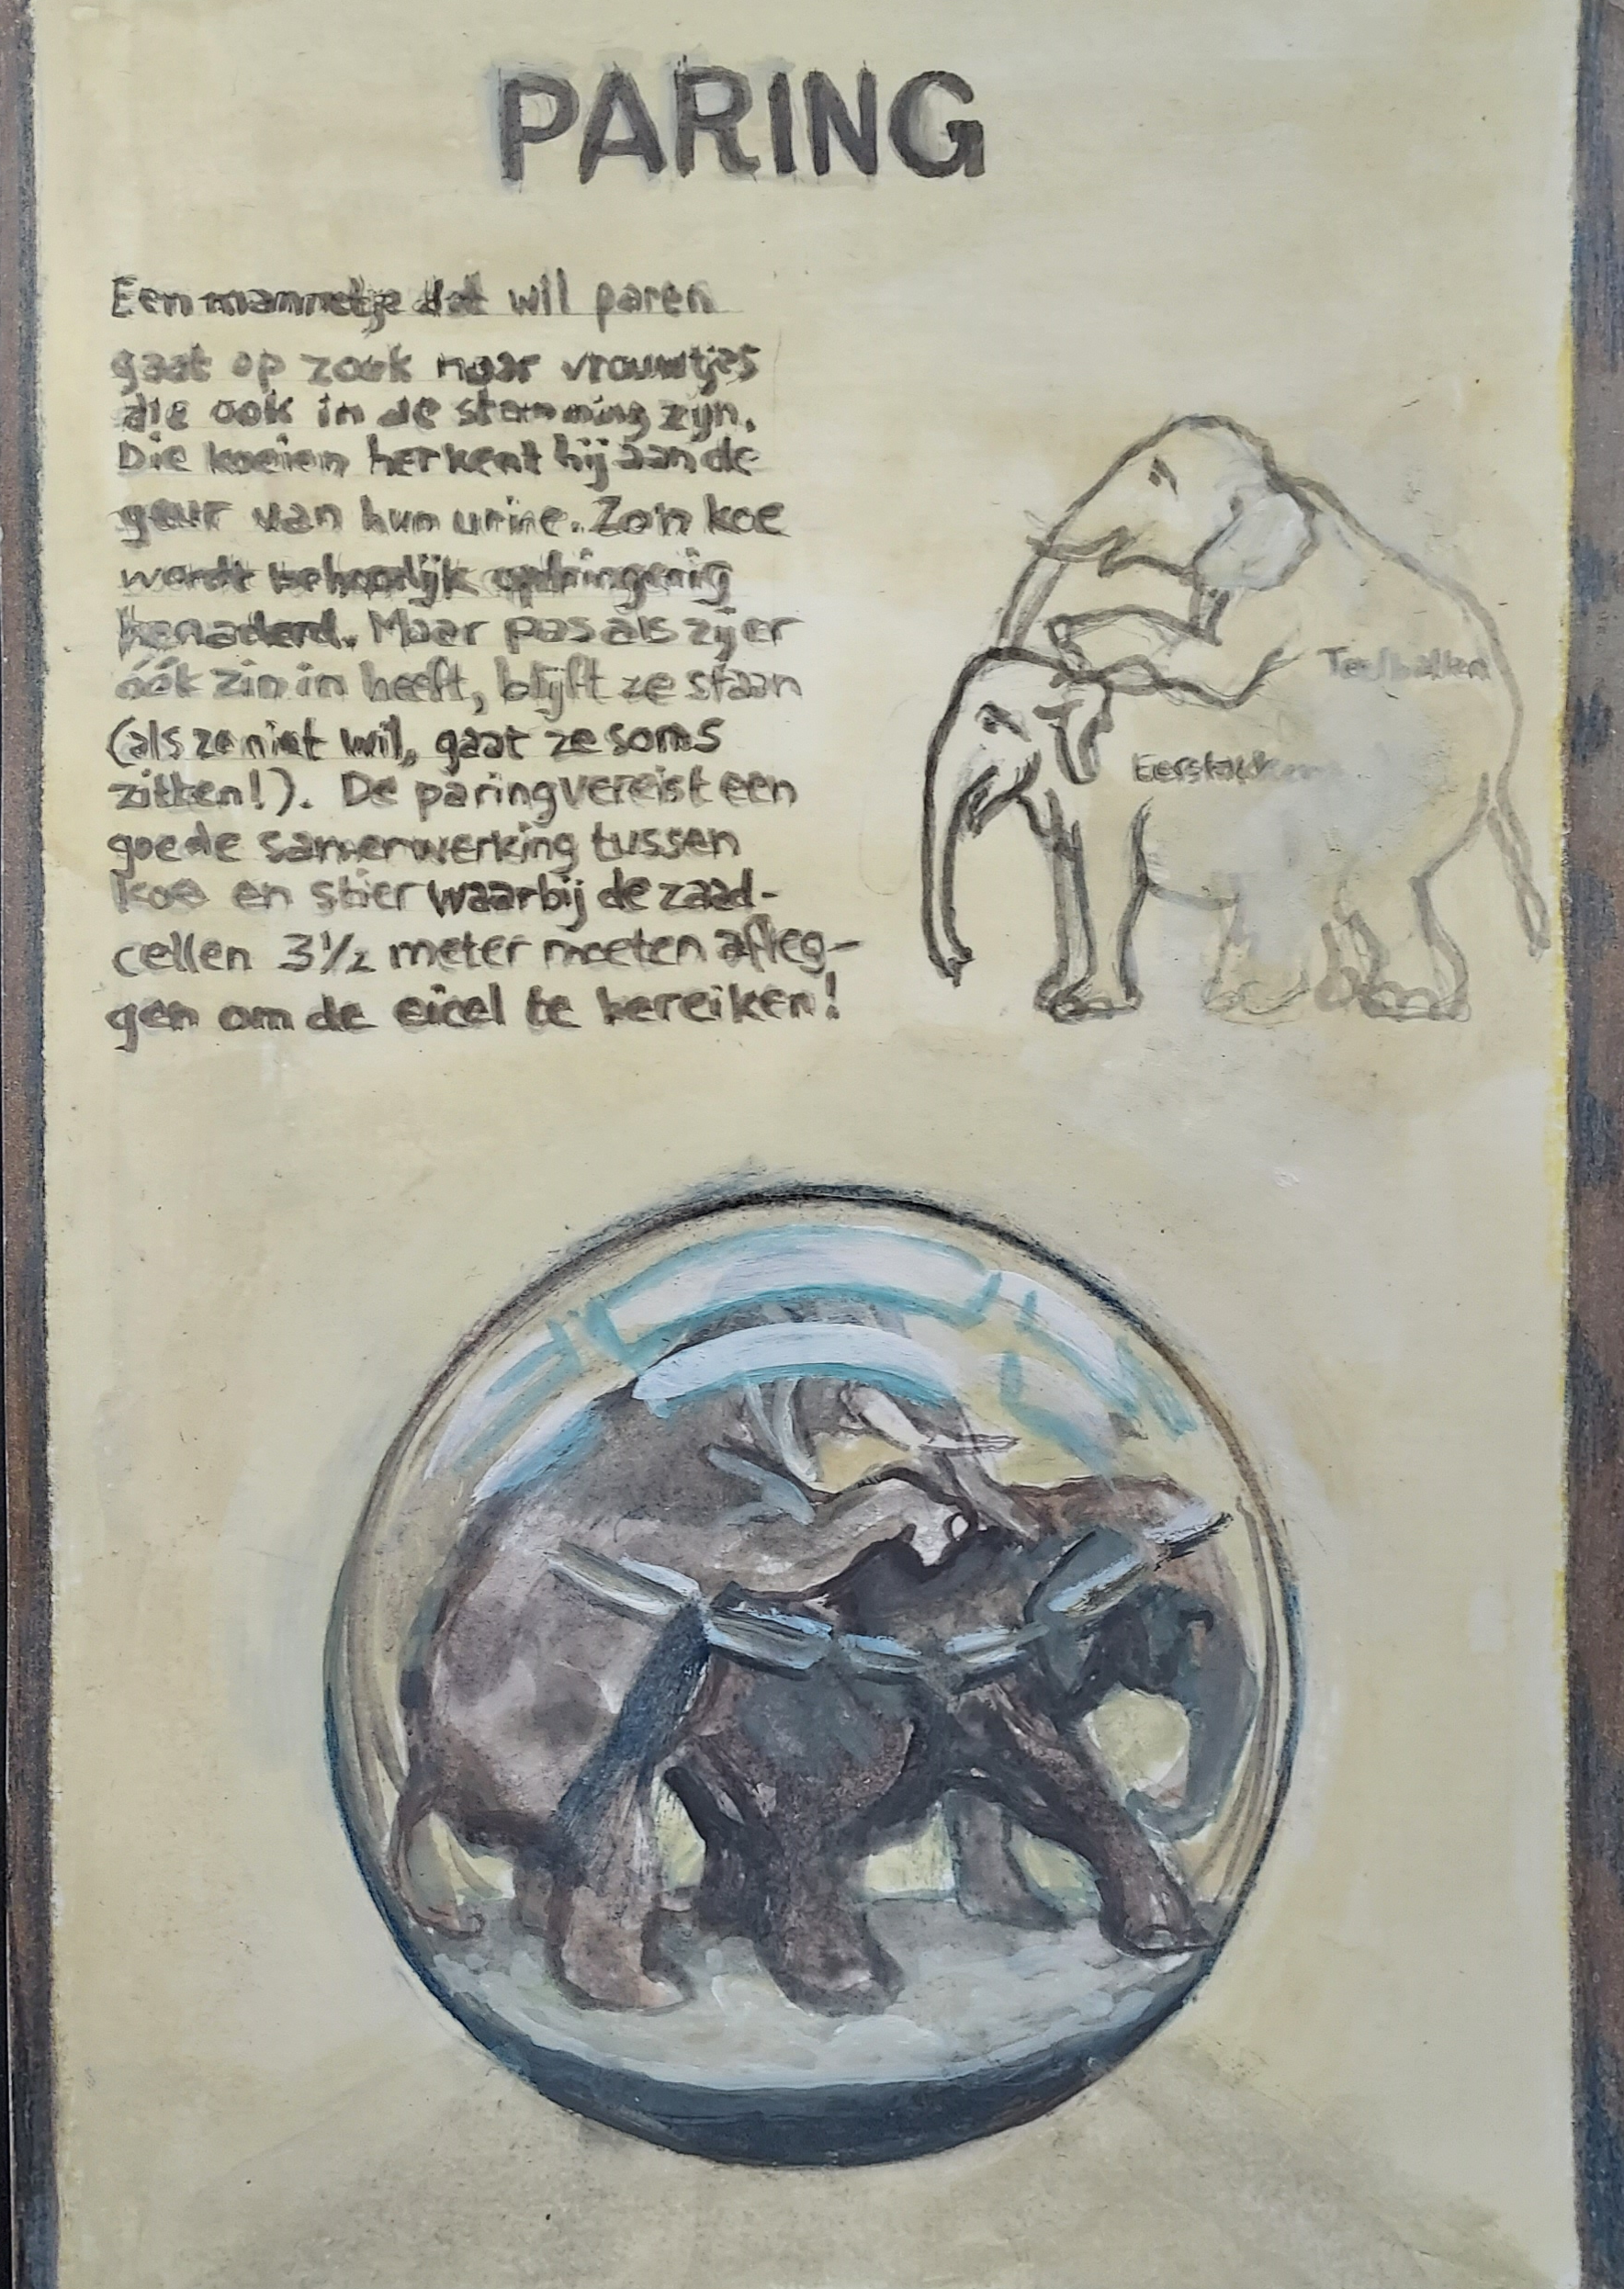 PARING
Een mannetje dat wil paren
gaat op zoek naar vrouwtjes
die ook in de stemming zijn.
Die koeien herkent hij aan de
geur van hun urine. Zo'n koe
wordt behoorlijk opdringerig
benaderd. Maar pas als zij er
óók zin in heeft, blijft ze staan
(als ze niet wil, gaat ze soms
zitten!). De paring vereist een
goede samenwerking tussen
koe en stier waarbij de zaad-
cellen 3½ meter moeten afleg-
gen om de eicel te bereiken!
Teelballen